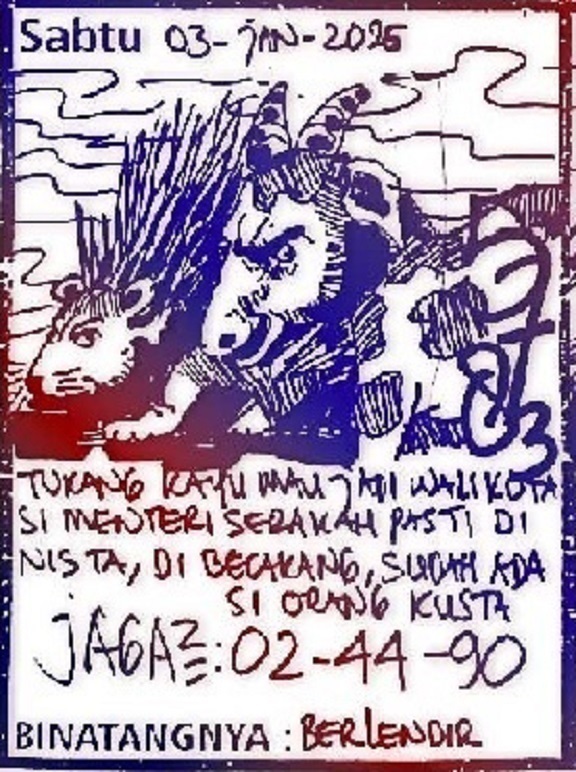 Sabtu 03-JAN-2026
97
83
TUKANG KAYU MAU JADI WALIKOTA
SI MENTERI SERAKAH PASTI DI
NISTA, DI BECAKANG, SUDAH ADA
SI ORANG KUSTA
JAGA2 : 02-44-90
BINATANGNYA : BERLENDIR